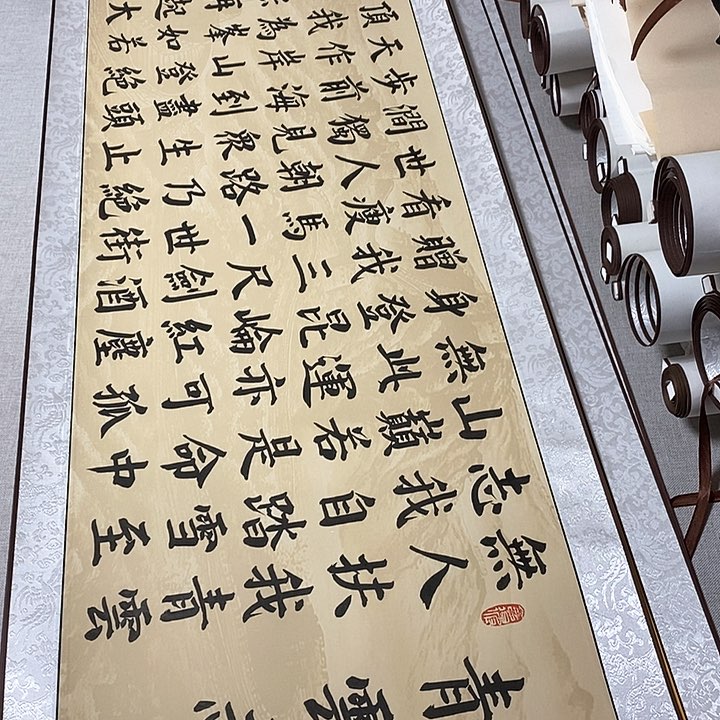 青雲志
無人扶我青雲
志我自踏雪至
山巔若是命中
無此運亦可孤
身登昆崙紅塵
贈我三尺劍酒
看瘦馬一世街
世人朝路乃絕
間獨見眾生止
步前海到盡頭
天作岸山登絕
頂我為峰如若
再起大